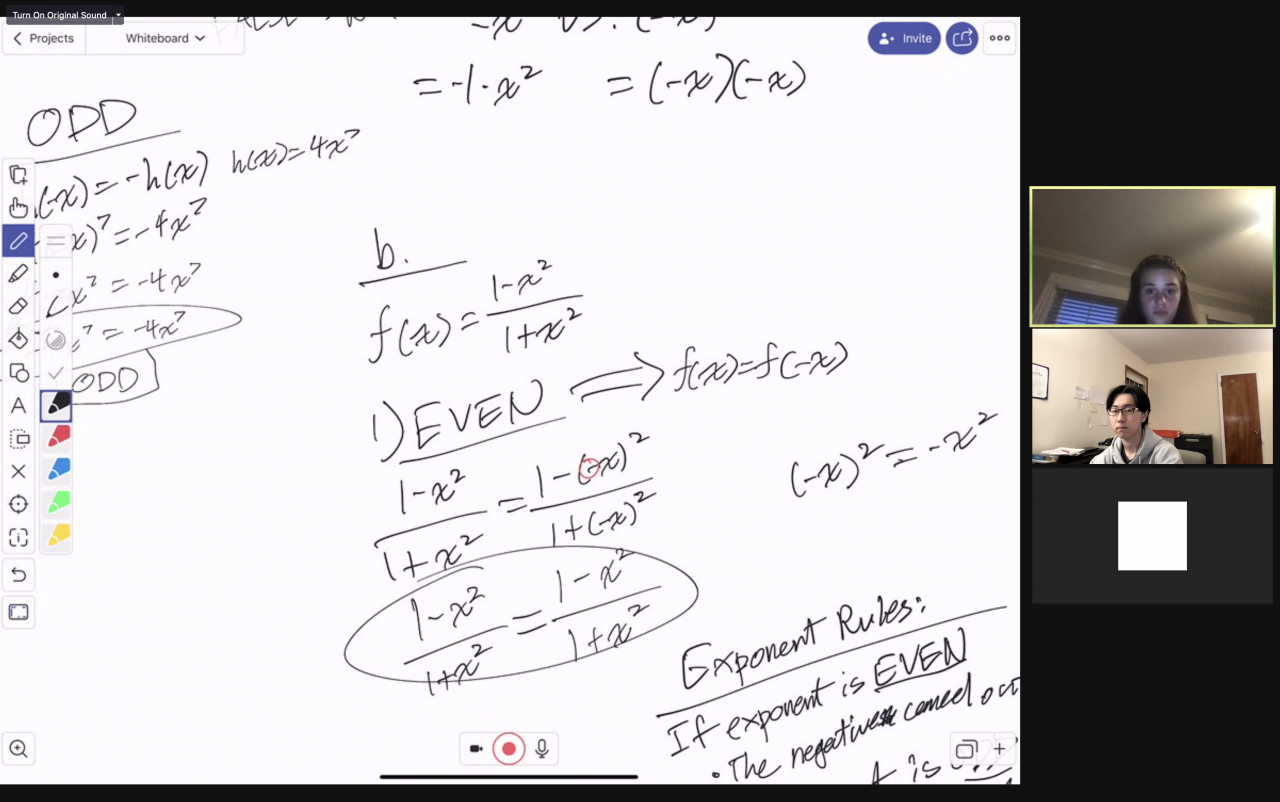 Turn On Original Sound
Projects
Whiteboard
Invite
-x² vs. (-x)²
= -1 · x² = (-x)(-x)
ODD
(-x) = -h(x) h(x) = 4x⁷
x)⁷ = -4x⁷
x⁷ = -4x⁷
x⁷ = -4x⁷
ODD
b.
f(x) = (1-x²)/(1+x²)
1) EVEN ⟹ f(x) = f(-x)
(1-x²)/(1+x²) = (1-(-x)²)/(1+(-x)²)
(-x)² = -x²
(1-x²)/(1+x²) = (1-x²)/(1+x²)
Exponent Rules:
If exponent is EVEN
• The negatives cancel out
is